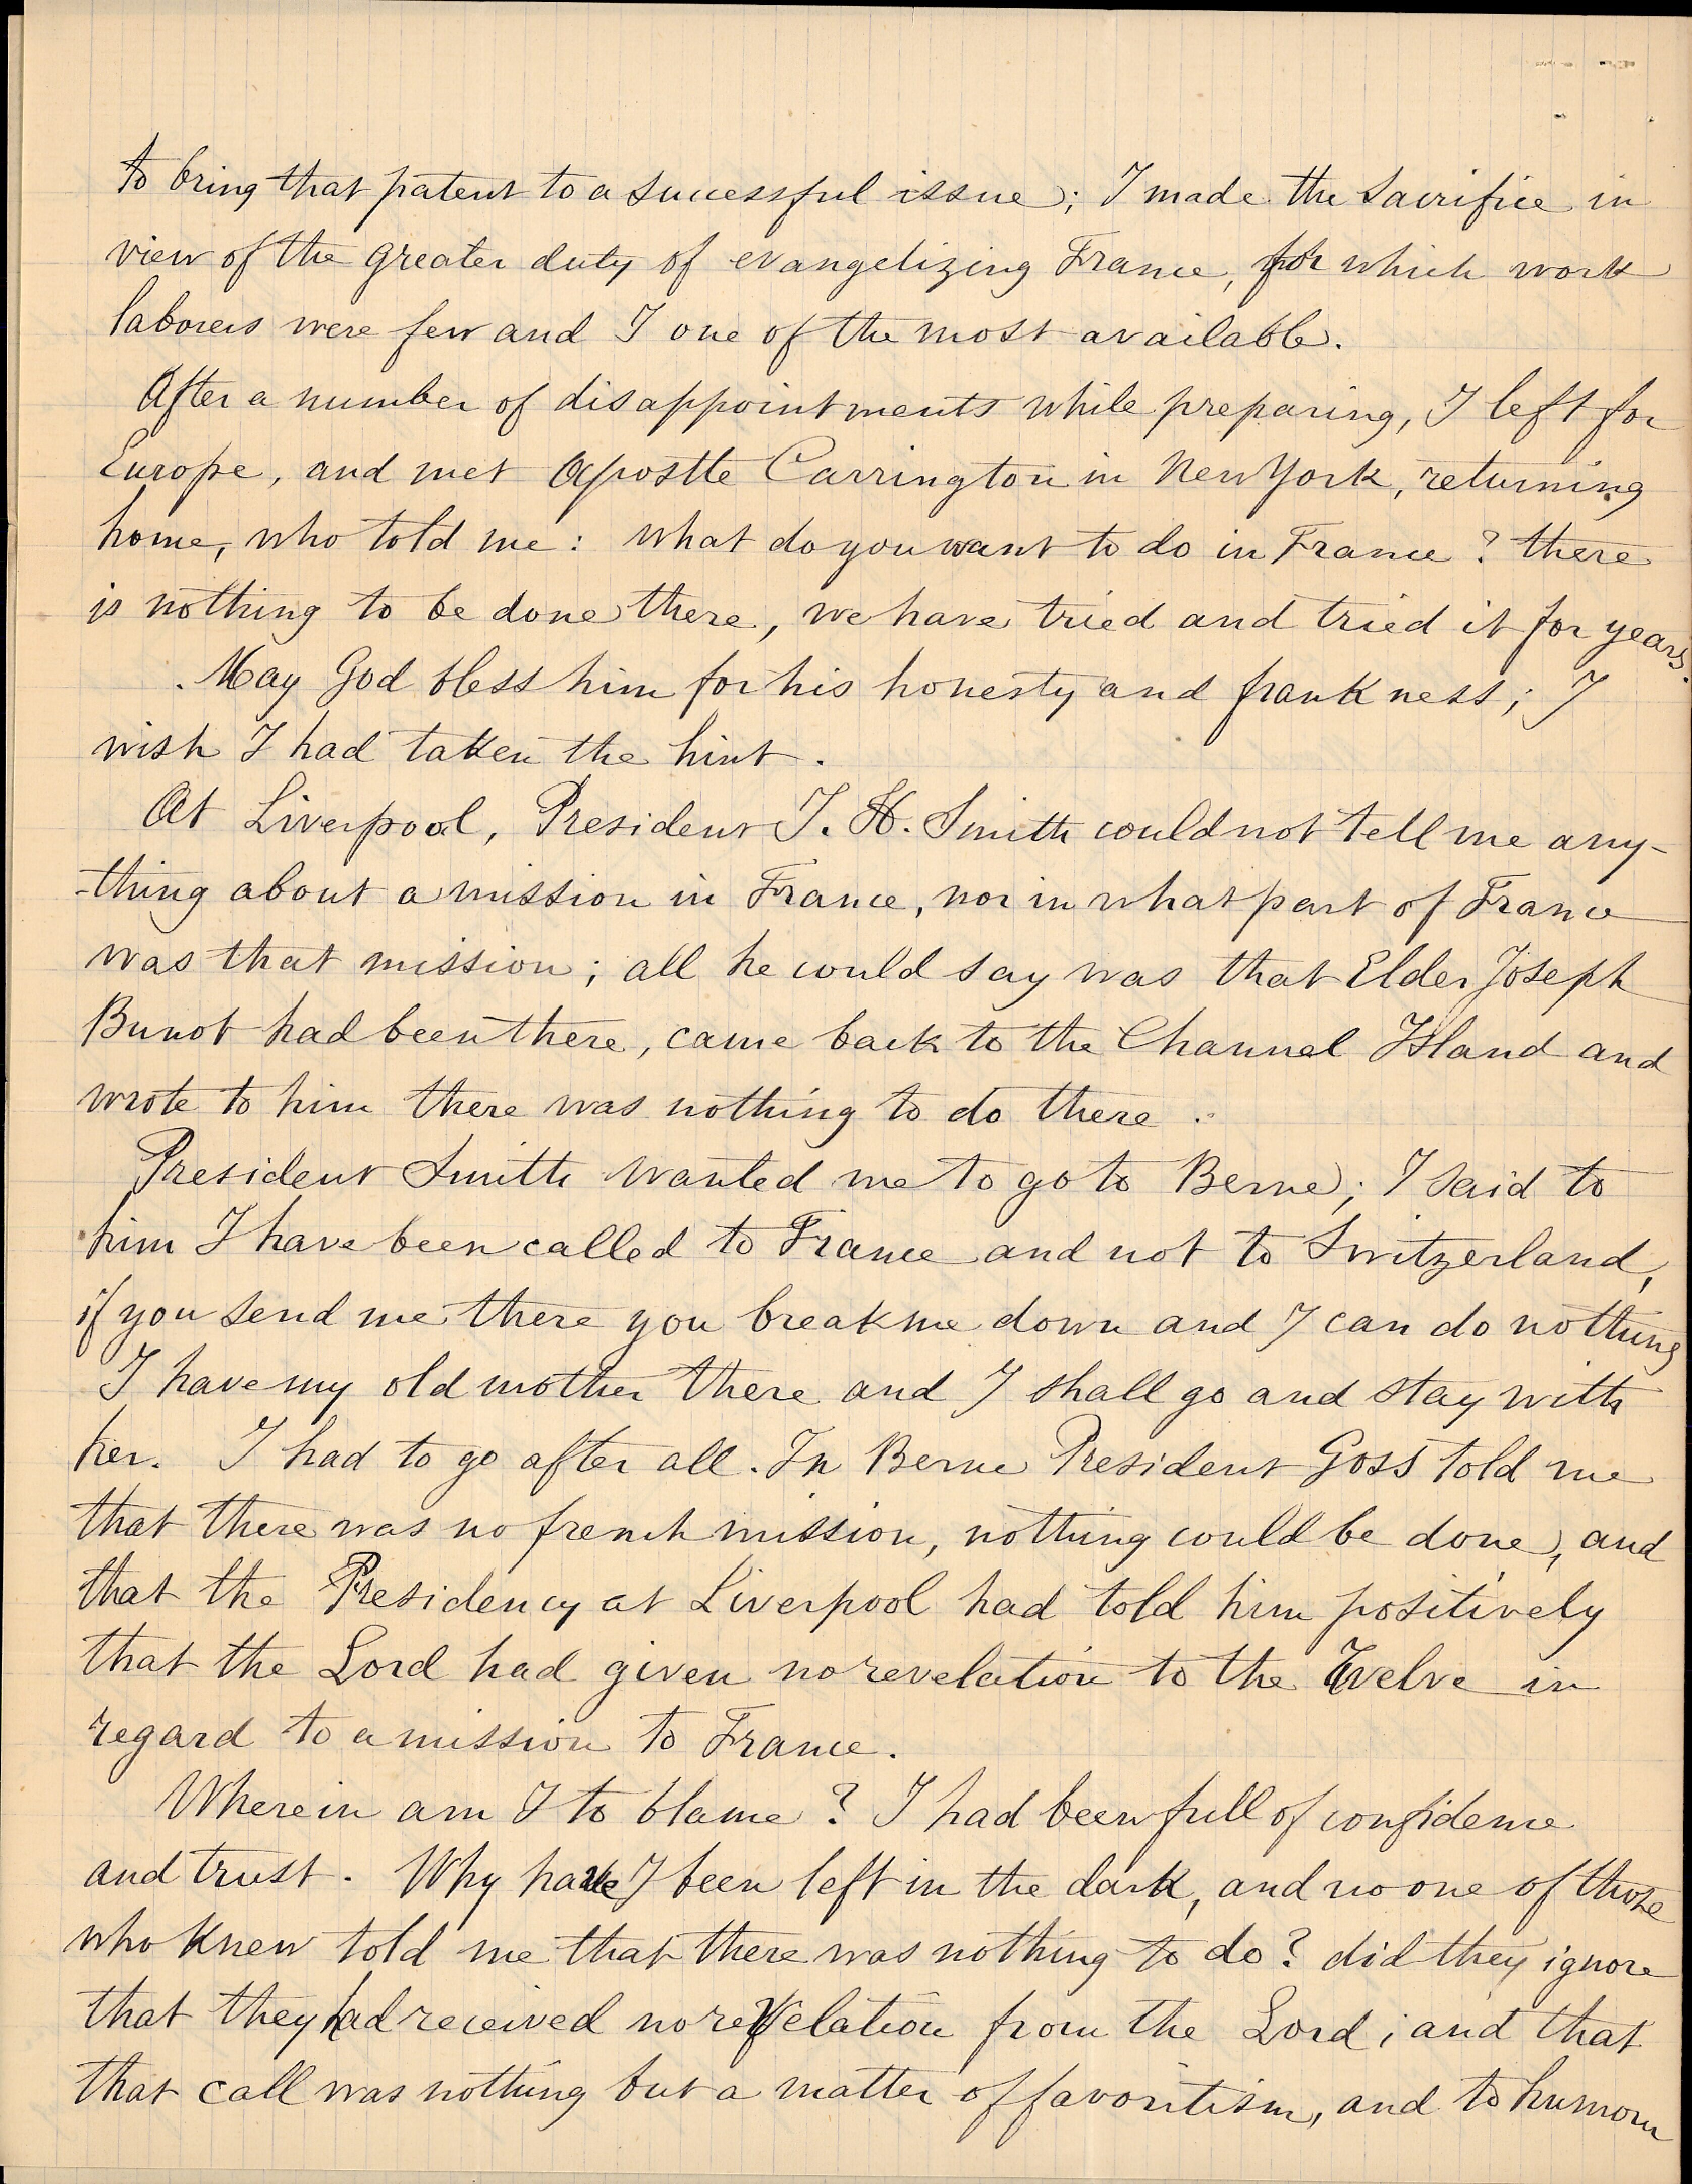 to bring that patent to a successful issue; I made the sacrifice in
view of the greater duty of evangelizing France, for which work
laborers were few and I one of the most available.
After a number of disappointments while preparing, I left for
Europe, and met Apostle Carrington in New York, returning
home, who told me: what do you want to do in France? there
is nothing to be done there, we have tried and tried it for years.
May God bless him for his honesty and frankness; I
wish I had taken the hint.
At Liverpool, President J. H. Smith could not tell me any-
-thing about a mission in France, nor in what part of France
was that mission; all he could say was that Elder Joseph
Bunot had been there, came back to the Channel Island and
wrote to him there was nothing to do there.
President Smith wanted me to go to Berne; I said to
him I have been called to France and not to Switzerland,
if you send me there you break me down and I can do nothing
I have my old mother there and I shall go and stay with
her. I had to go after all. In Berne President Goss told me
that there was no french mission, nothing could be done, and
that the Presidency at Liverpool had told him positively
that the Lord had given no revelation to the Twelve in
regard to a mission to France.
Wherein am I to blame? I had been full of confidence
and trust. Why have I been left in the dark, and no one of those
who knew told me that there was nothing to do? did they ignore
that they had received no revelation from the Lord; and that
that call was nothing but a matter of favoritism, and to humour